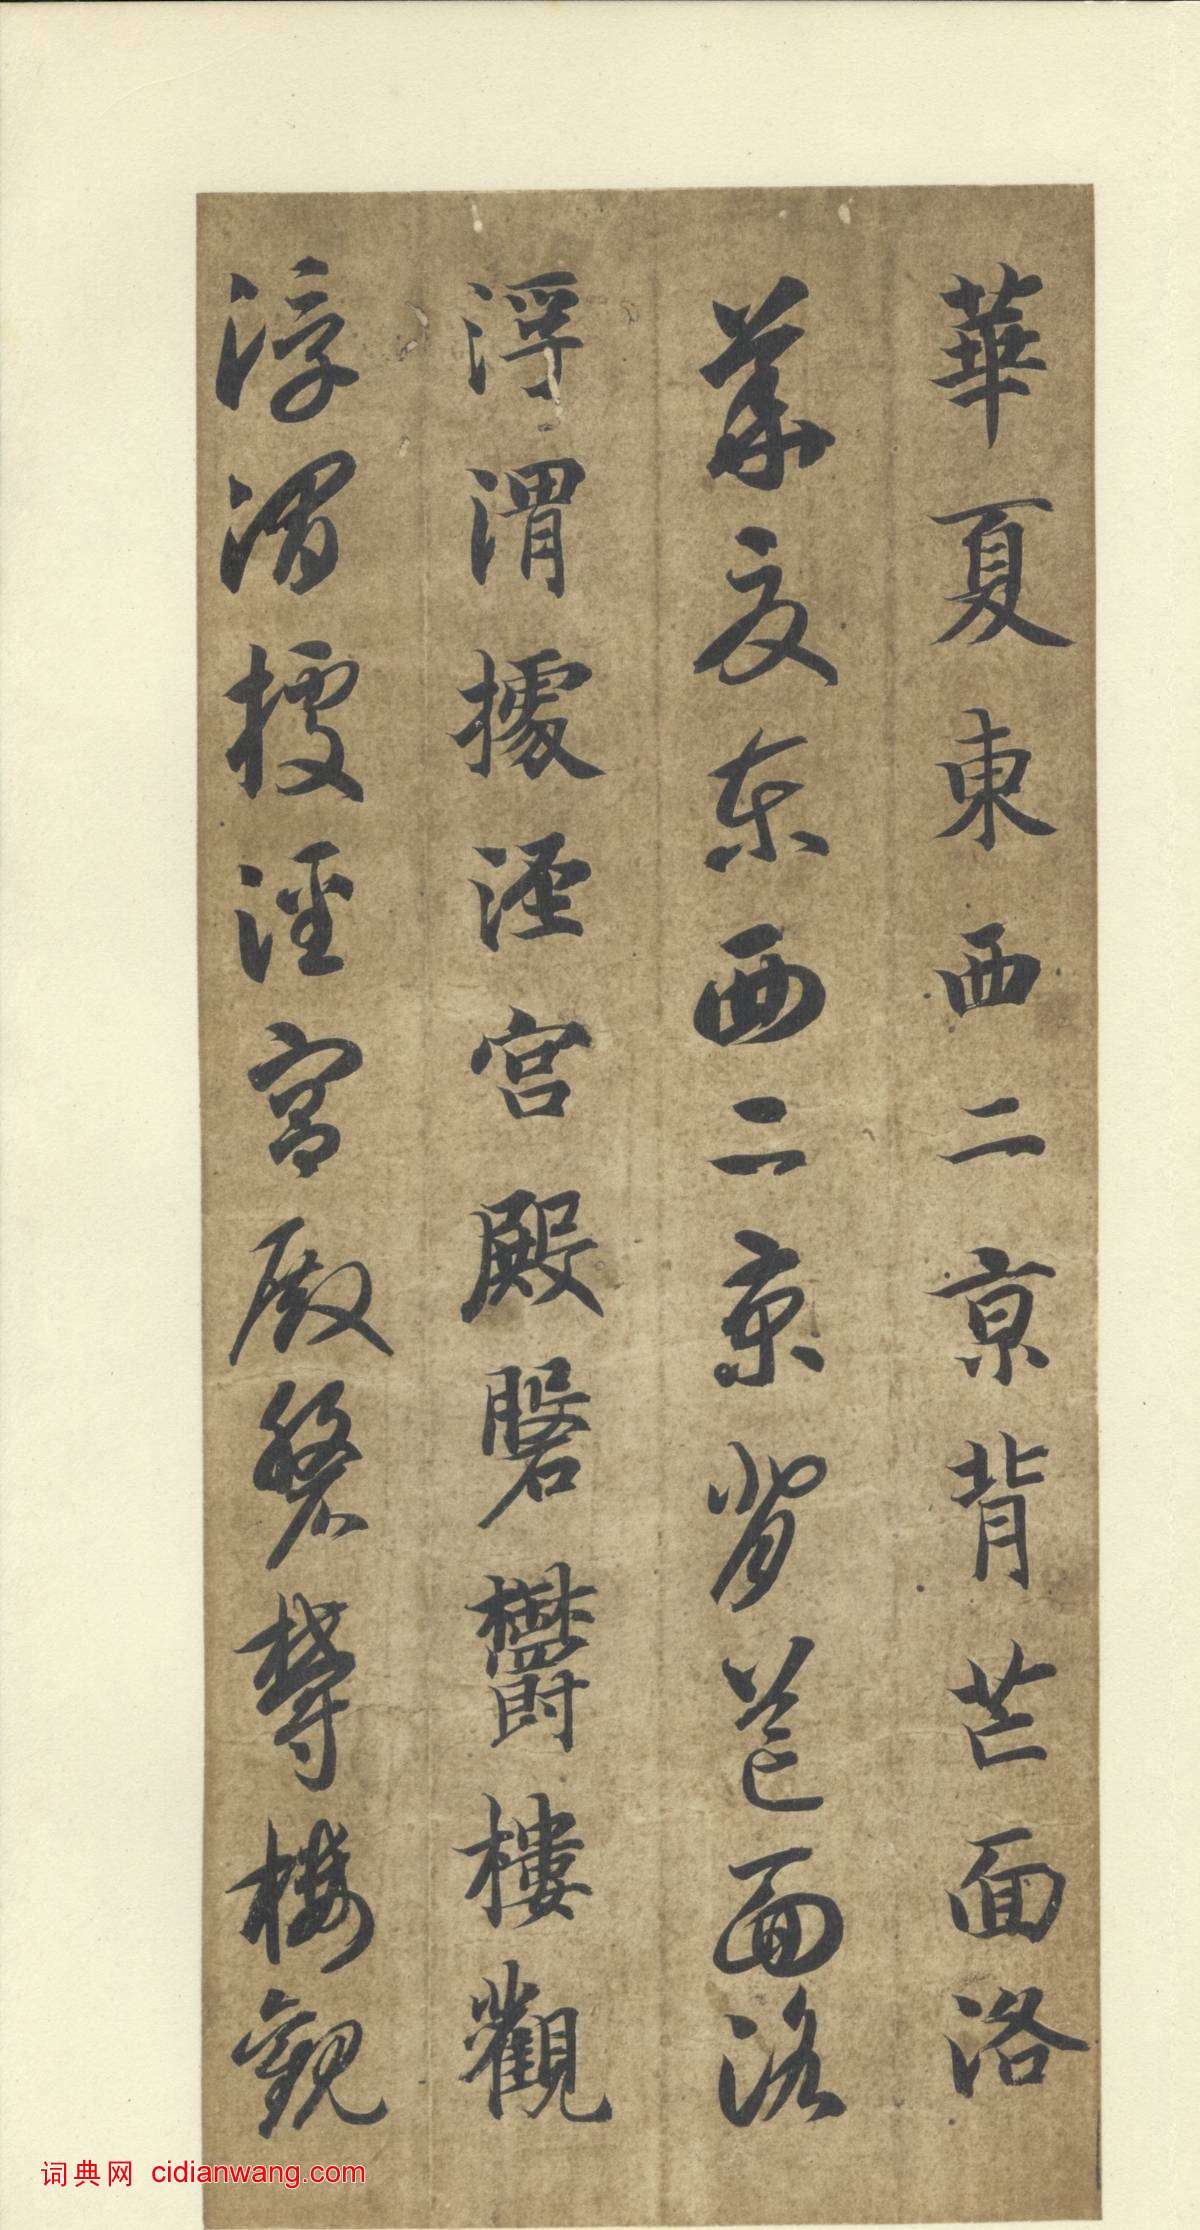 華夏東西二京背芒面洛
華夏東西二京背芒面洛
浮渭據涇宮殿磐鬱樓觀
浮渭據涇宮殿磐鬱樓觀
词典网 cidianwang.com